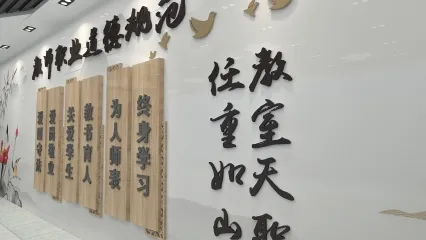 教师职业道德规范
爱国守法
爱岗敬业
关爱学生
教书育人
为人师表
终身学习
教室天
任重如山